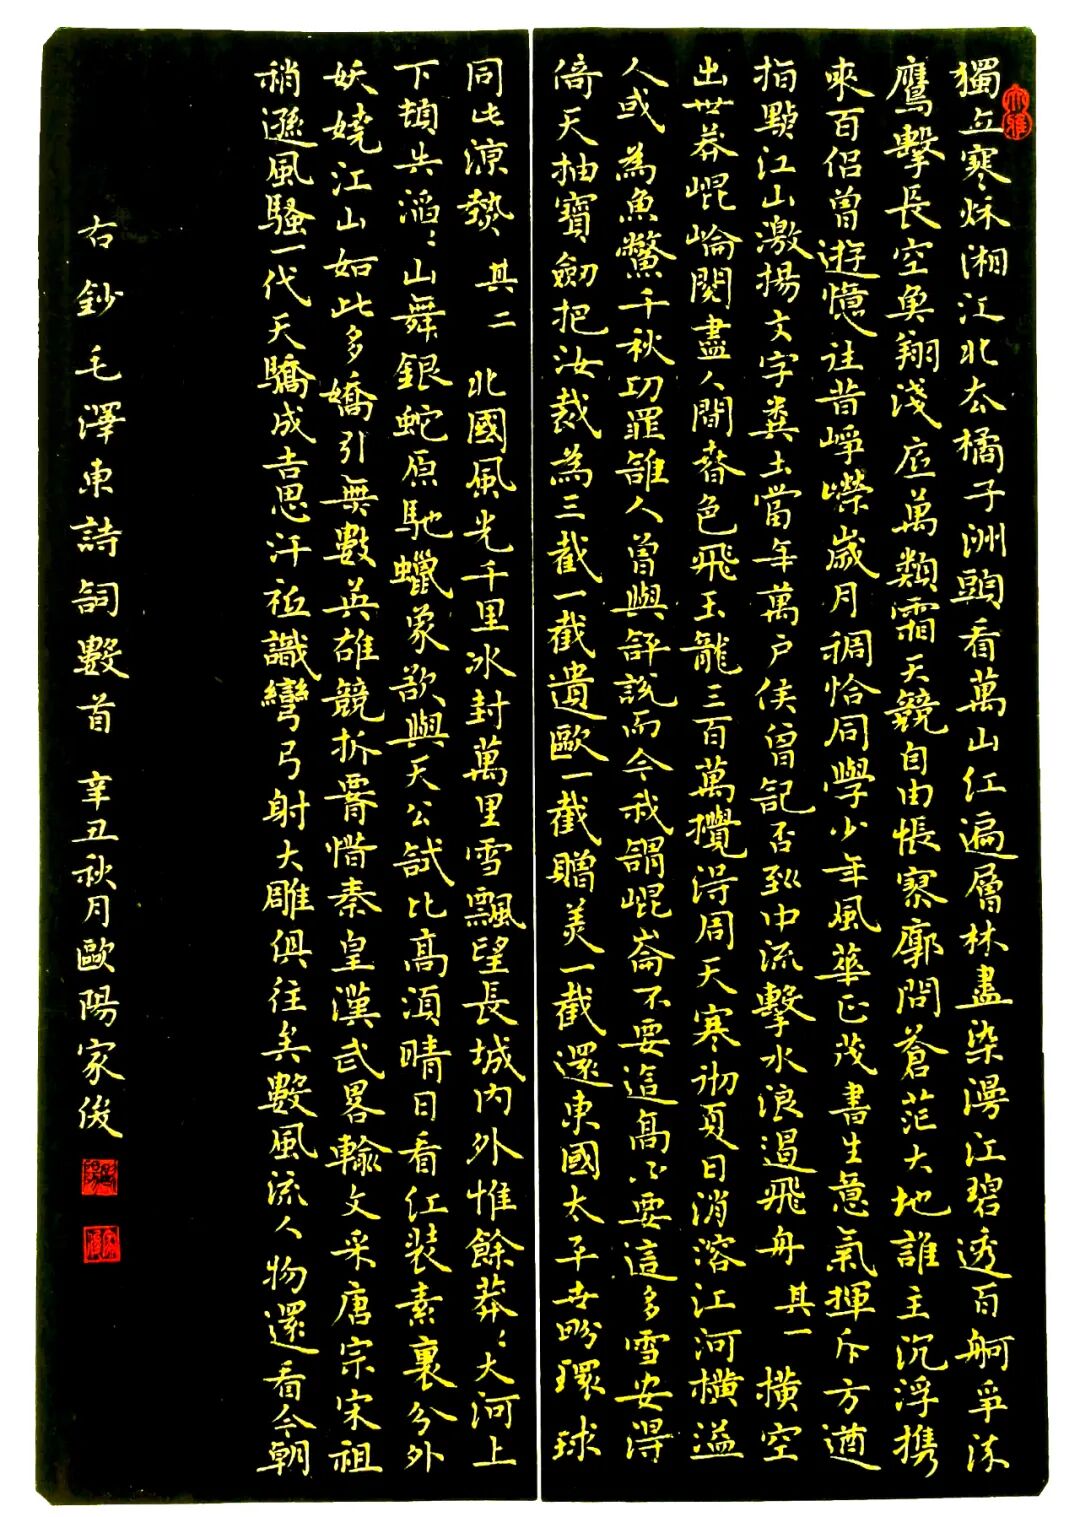 獨立寒秌湘江北去橘子洲頭看萬山紅遍層林盡染漫江碧透百舸爭流
鷹擊長空魚翔淺底萬類霜天競自由悵寥廓問蒼茫大地誰主沉浮攜
來百侶曾遊憶往昔崢嶸歲月稠恰同學少年風華正茂書生意氣揮斥方遒
指點江山激揚文字糞土當年萬戶侯曾記否到中流擊水浪遏飛舟 其一 橫空
出世莽崐崘閱盡人間春色飛玉龍三百萬攪得周天寒徹夏日消溶江河橫溢
人或為魚鱉千秋功罪誰人曾與評說而今我謂崐崙不要這高不要這多雪安得
倚天抽寶劍把汝裁為三截一截遺歐一截贈美一截還東國太平世界環球
同此涼熱 其二 北國風光千里冰封萬里雪飄望長城內外惟餘莽〻大河上
下頓失滔〻山舞銀蛇原馳蠟象欲與天公試比高須晴日看紅裝素裹分外
妖嬈江山如此多嬌引無數英雄競折腰惜秦皇漢武畧輸文采唐宗宋祖
稍遜風騷一代天驕成吉思汗祗識彎弓射大雕俱往矣數風流人物還看今朝
右鈔毛澤東詩詞數首 辛丑秋月歐陽家俊